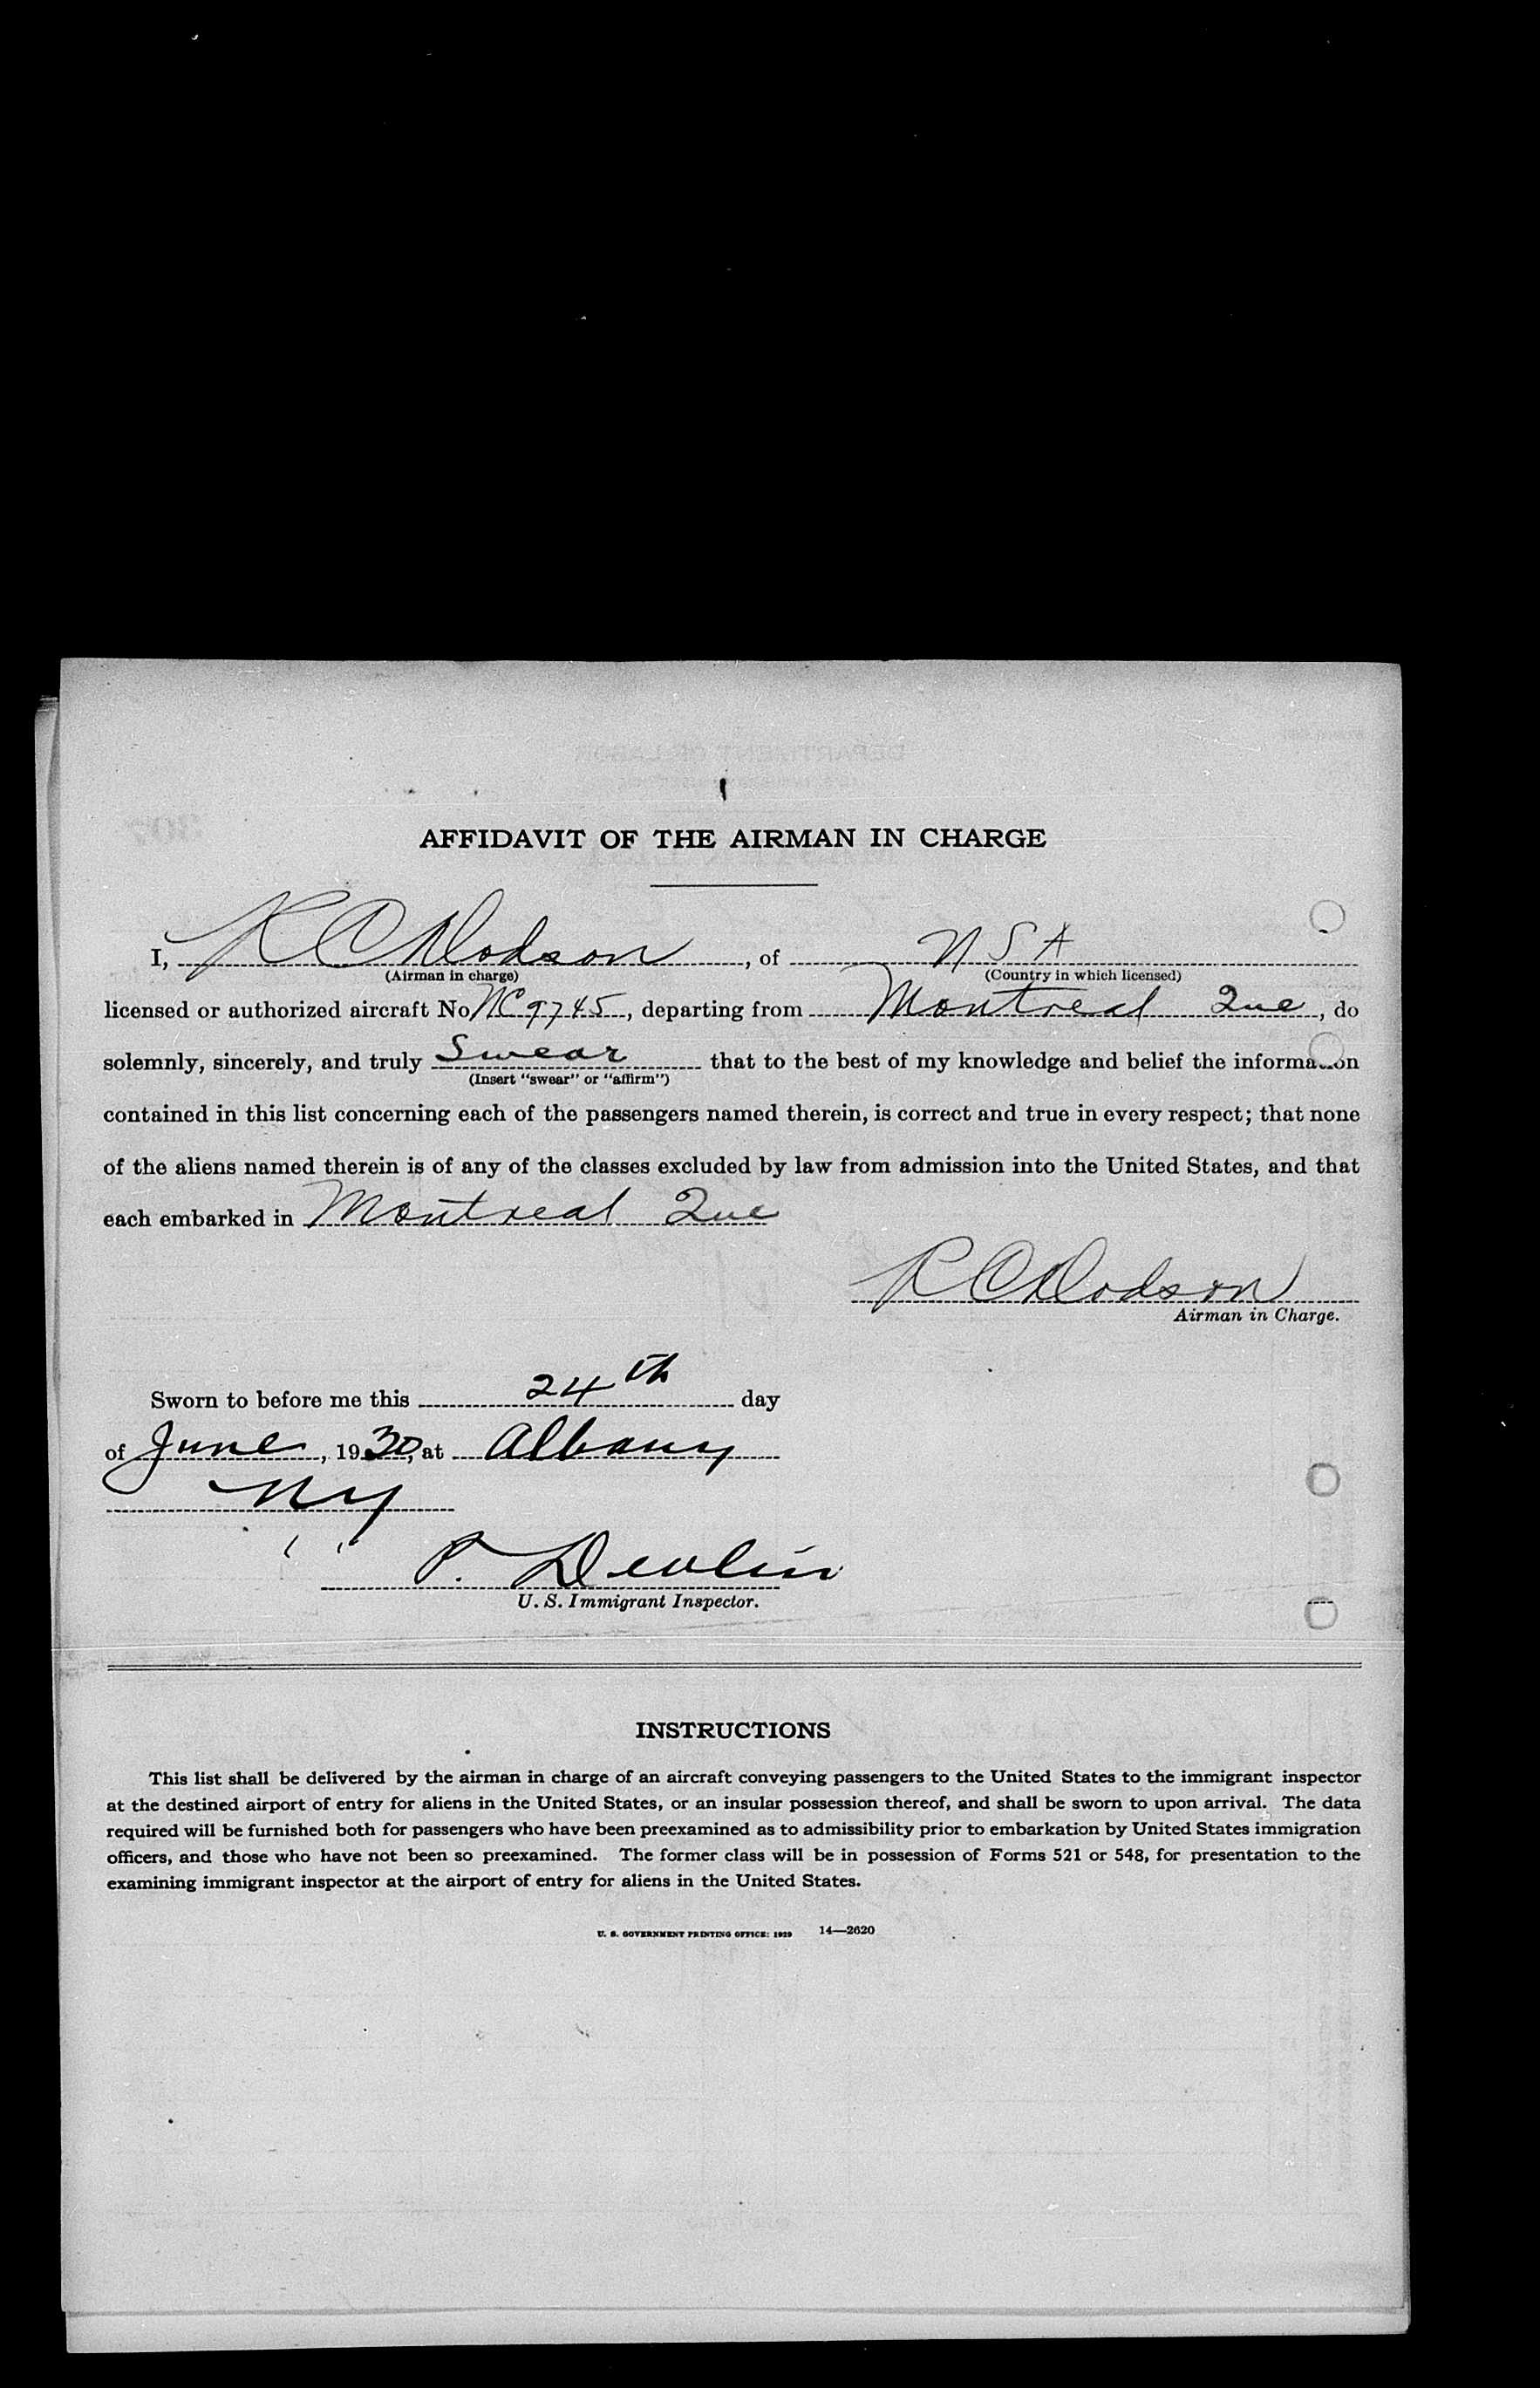 AFFIDAVIT OF THE AIRMAN IN CHARGE
I, R C Dodson, of U S A
(Airman in charge) (Country in which licensed)
licensed or authorized aircraft No NC 9745, departing from Montreal Que, do
solemnly, sincerely, and truly Swear that to the best of my knowledge and belief the information
(Insert "swear" or "affirm")
contained in this list concerning each of the passengers named therein, is correct and true in every respect; that none
of the aliens named therein is of any of the classes excluded by law from admission into the United States, and that
each embarked in Montreal Que
R C Dodson
Airman in Charge.
Sworn to before me this 24th day
of June, 1930, at Albany
NY
P. Devlin
U. S. Immigrant Inspector.
INSTRUCTIONS
This list shall be delivered by the airman in charge of an aircraft conveying passengers to the United States to the immigrant inspector
at the destined airport of entry for aliens in the United States, or an insular possession thereof, and shall be sworn to upon arrival. The data
required will be furnished both for passengers who have been preexamined as to admissibility prior to embarkation by United States immigration
officers, and those who have not been so preexamined. The former class will be in possession of Forms 521 or 548, for presentation to the
examining immigrant inspector at the airport of entry for aliens in the United States.
U. S. GOVERNMENT PRINTING OFFICE: 1929 14—2620